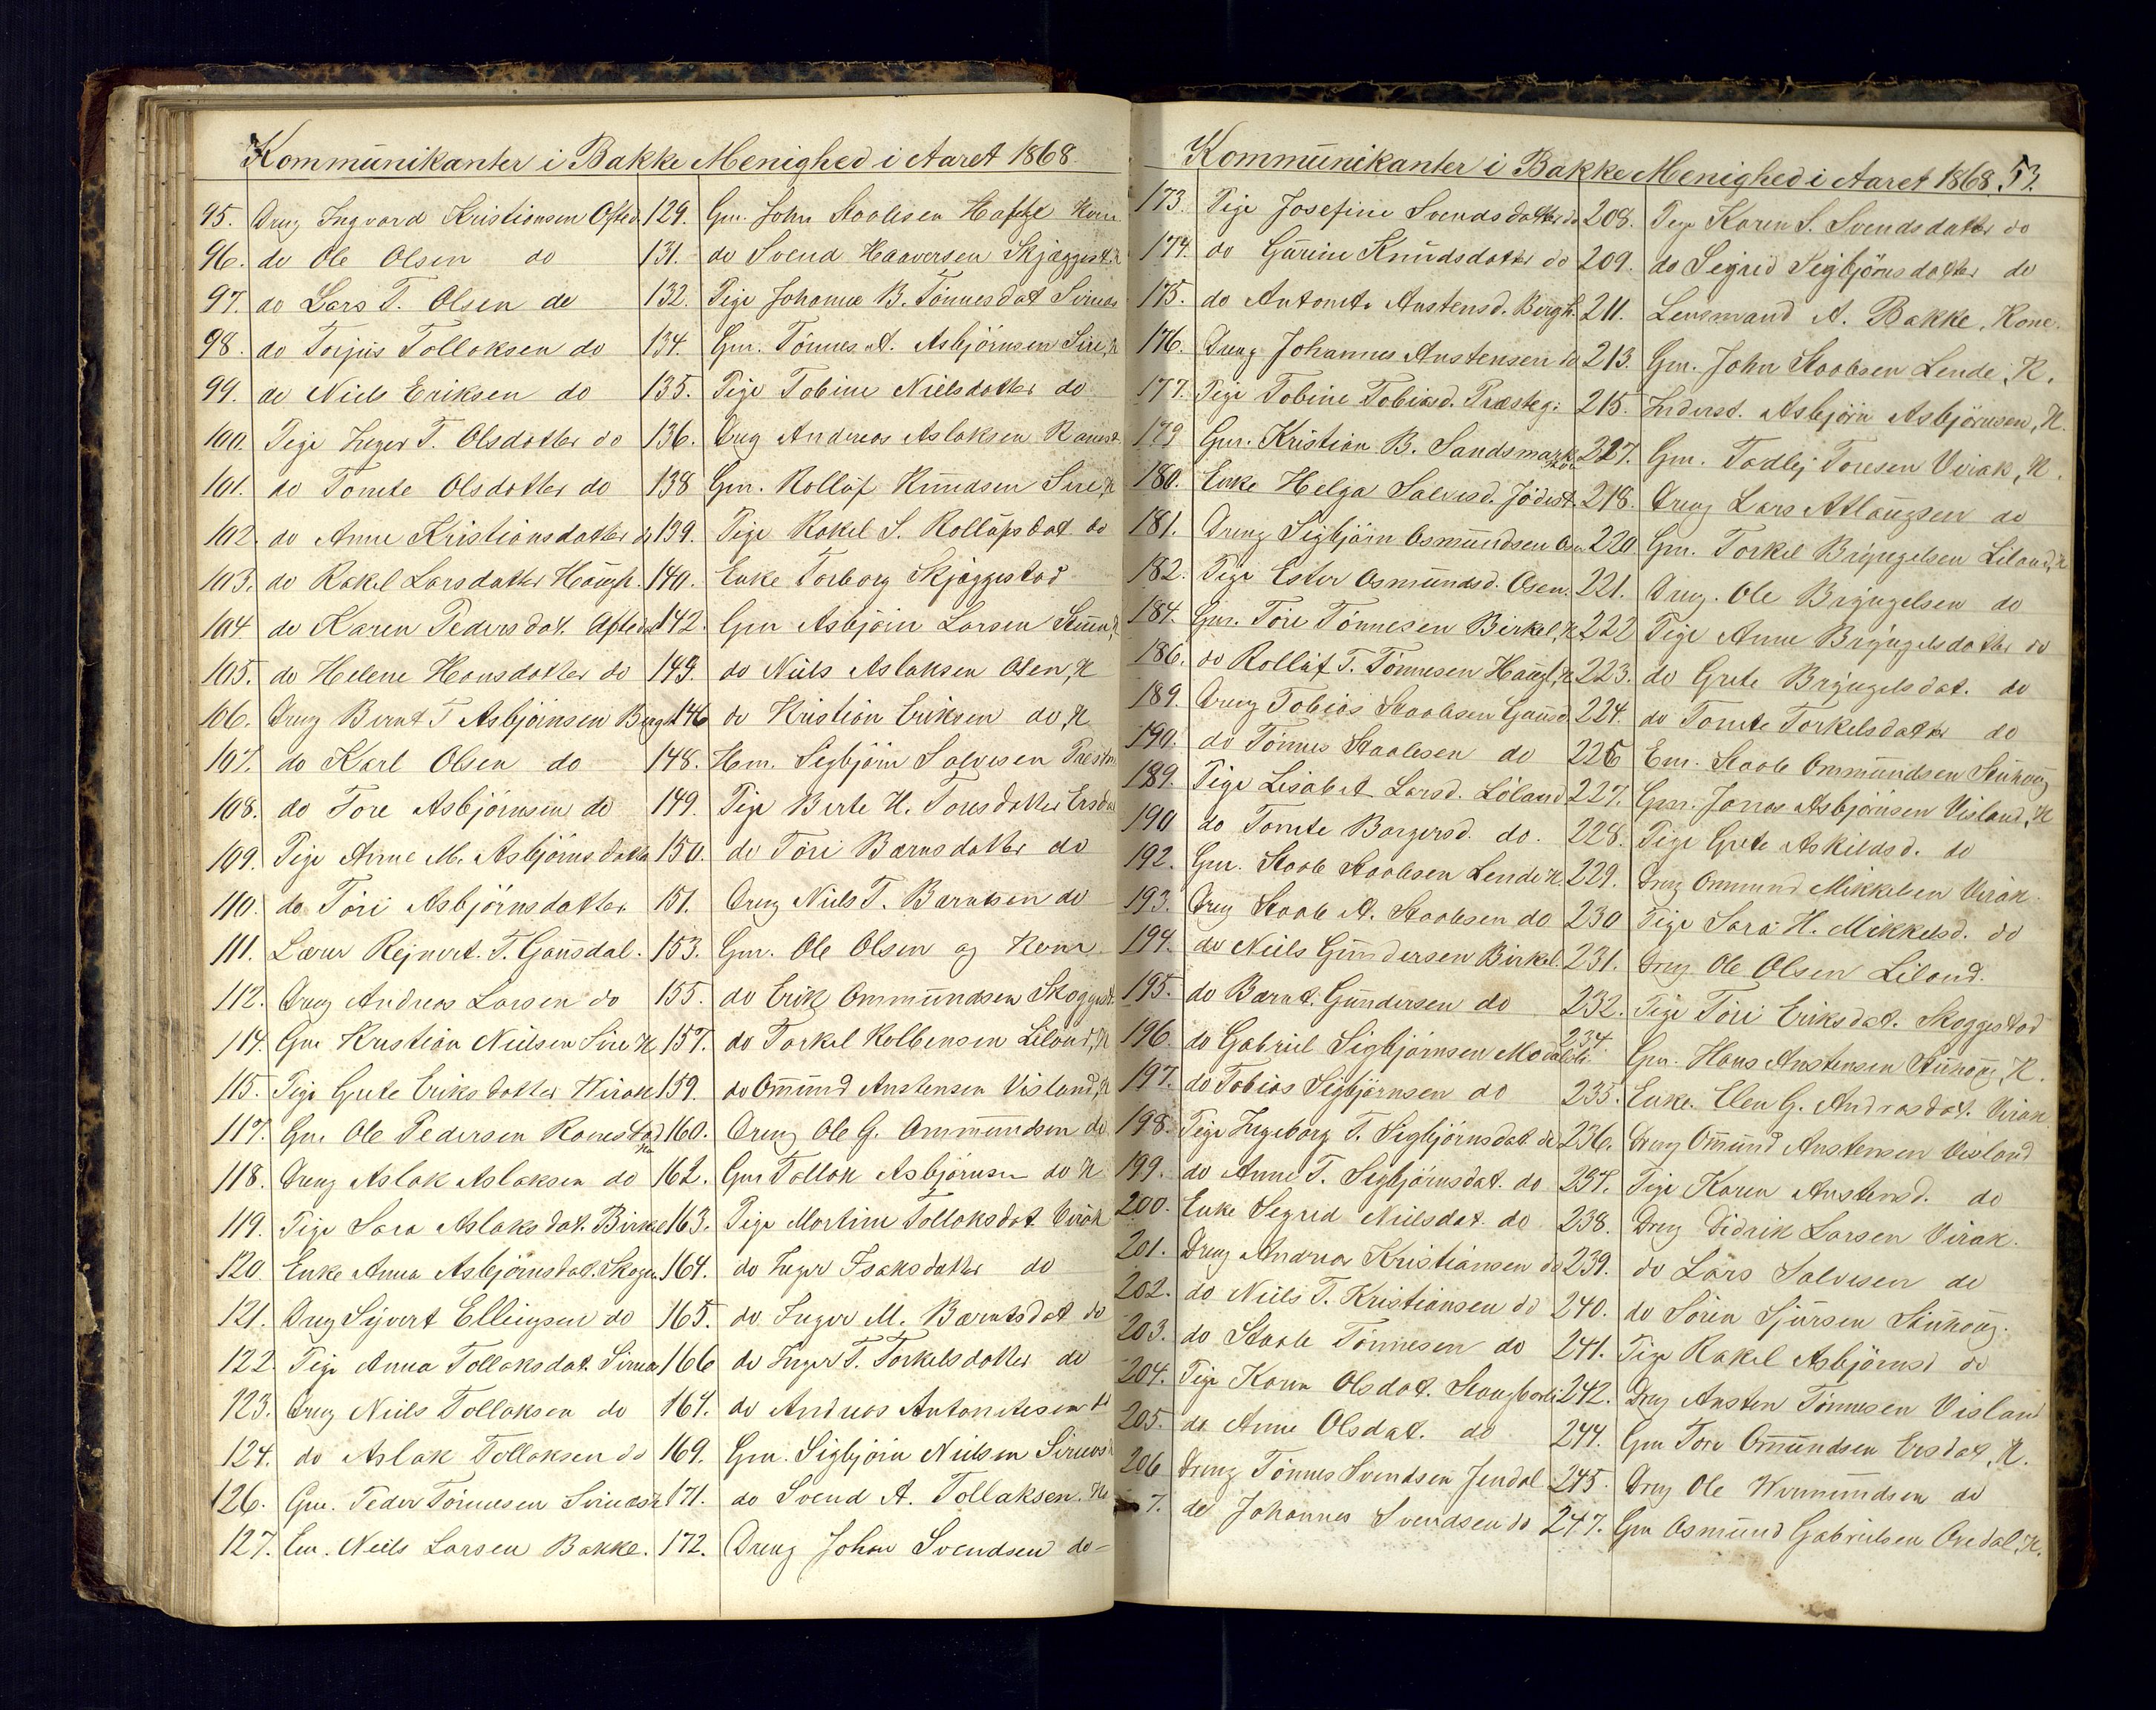 Kommunikanter i Bakke Menighed i Aaret 1868
95. Dreng Ingvard Kristiansen Ofted.
96. do Ole Olsen do
97. do Lars T. Olsen do
98. do Torjus Tolloksen do
99. do Niels Eriksen do
100. Pige Inger T. Olsdatter do
101. do Tomte Olsdatter do
102. do Anne Kristiansdatter do
103. do Rakel Larsdatter Haugh.
104. do Karen Pedersdat. Ofted
105. do Helene Hansdatter do
106. Dreng Bernt T Asbjörnsen Bergh
107. do Karl Olsen do
108. do Tore Asbjörnsen do
109. Pige Anne M. Asbjörnsdatter
110. do Töri Asbjörnsdatter
111. Lærer Rejnert. T. Gausdal.
112. Dreng Andreas Larsen do
114. Gm Kristian Nielsen Sire K
115. Pige Grete Eriksdatter Virak
117. Gm. Ole Pedersen Ranestad Kn
118. Dreng Aslak Aslaksen do
119. Pige Sara Aslaksdat. Birkel
120. Enke Anna Asbjörnsdat. Skoge
121. Dreng Sijvert Ellingsen do
122. Pige Anna Tollaksdat. Sirnæs
123. Dreng Niels Tollaksen do
124. do Aslak Tollaksen do
126. Gm. Peder Tönnesen Sirnæs K
127. Em. Neils Larsen Bakke.
129. Gm. John Staalesen Haftge Kone
131. do Svend Haaversen Skjæggest. K
132. Pige Johanne B. Tönnesdat Sirnæs
134. Gm. Tönnes A. Asbjörnsen Sire, K
135. Pige Tobine Nielsdatter do
136. Dreng Andreas Aslaksen Ranest.
138 Gm. Rolluf Knudsen Sire, K
139. Pige Rakel S. Rollufsdat. do
140. Enke Torborg Skjæggestad
142. Gm Asbjörn Larsen Stuen, K
143. do Niels Aslaksen Osen, K
146 do Kristian Eriksen do, K
148. Hm. Sigbjörn Salvesen Præstn
149. Pige Berte H. Toresdatter Ersdal
150. do Töri Barnsdatter do
151. Dreng Niels T. Barntsen do
153. Gm. Ole Olsen og Kone
155. do Erik Ommundsen Skoggest.
157. do Torkel Kolbensen Liland, K
159. do Omund Anstensen Visland, K
160. Dreng Ole G. Ommundsen do
162. Gm Tollak Asbjörnsen do K
163. Pige Martine Tollaksdat. Virak
164. do Inger Isaksdatter do
165. do Inger M. Barntsdat do
166 do Inger T. Torkelsdatter do
167. do Andreas Antonitesen do
169. Gm. Sigbjörn Nielsen Sirnæs K
171. do Svend A. Tollaksen. K
172. Dreng Johan Svendsen do
Kommunikanter i Bakke Menighed i Aaret 1868. 53.
173. Pige Josefine Svendsdatter do
174. do Gurine Knudsdatter do
175. do Antonete Anstensd. Bergh.
176. Dreng Johannes Anstensen do
177. Pige Tobine Tobiasd. Præsteg:
179 Gm. Kristian B. Sandsmark Kon
180. Enke Helga Salvesd. Jödest.
181. Dreng Sigbjörn Osmundsen Osen
182. Pige Ester Osmundsd. Osen.
184. Gm. Tore Tönnesen Birkel, K
186. do Rolluf T. Tönnesen Haugl, K
189. Dreng Tobias Staalesen Gausd
190. do Tönnes Staalesen do
189. Pige Lisabet Larsd. Löland
190 do Tomte Borgersd. do.
192. Gm. Staale Staalesen Lende K.
193. Dreng Staale A. Staalesen do
194. do Neils Gundersen Birkel.
195. do Barnt. Gundersen do
196. do Gabriel Sigbjörnsen Modalsli
197. do Tobias Sigbjörnsen do
198. Pige Ingeborg T. Sigbjörnsdat do
199. do Anne T. Sigbjörnsdat. do
200. Enke Segred Nielsdat. do
201. Dreng Andreas Kristiansen do
202. do Niels T. Kristiansen do
203. do Staale Tönnesen do
204. Pige Karen Olsdat.
205. do Anne Olsdat. do
206 Dreng Tönnes Svendsen Jendal
7. do Johannes Svendsen do
208. Pige Karen S. Svendsdatter do
209. do Segred Sigbjörnsdatter do
211. Lensmand A. Bakke, Kone.
213. Gm. John Staalesen Lende, K.
215. Inderst. Asbjörn Asbjörnsen, K.
217. Gm. Tadlej Toresen Virak, K.
218. Dreng Lars Atlaugsen do
220 Gm. Torkel Bryngelsen Liland, K
221. Dreng. Ole Bryngelsen do
222 Pige Anne Bryngelsdatter do
223. do Grete Bryngelsdat. do
224. do Tomte Torkelsdatter do
225 Em. Staale Ommundsen Stuhaug
227. Gm. Jonas Asbjörnsen Visland, K
228. Pige Grete Askildsd. do
229. Dreng Ommund Mikkelsen Virak.
230 Pige Sara H. Mikkelsd. do
231. Dreng Ole Olsen Liland.
232. Pige Töri Eriksdat. Skoggestad
234 Gm. Hans Anstensen Stuhaug, K.
235. Enke. Elen G. Andrasdat. Virak
236. Dreng Omund Anstensen Visland
237. Pige Karen Anstensd. do
238. Dreng Didrik Larsen Virak.
239. do Lars Salvesen do
240. do Sören Sjursen Stuhaug.
241. Pige Rakel Asbjörnsd do
242. Dreng Ansten Tönnesen Visland
244. Gm Tore Omundsen Ersdal, K.
245. Dreng Ole Wermundsen do
247. Gm Osmund Gabrielsen Ovedal, K.